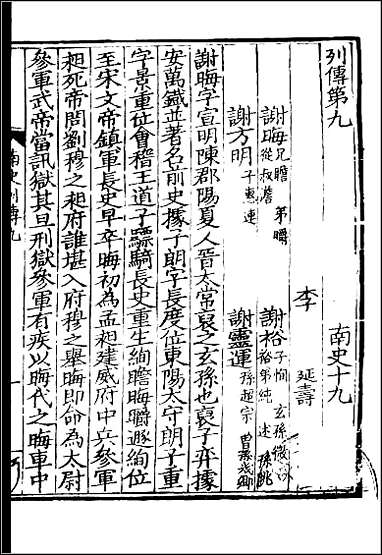 列傳第九　南史十九
李　延壽
謝晦兄瞻　弟㬭　從叔澹　謝裕子恂　玄孫微　裕弟純　述　孫朓
謝方明子惠連　謝靈運孫超宗　曾孫幾卿
謝晦字宣明陳郡陽夏人晉太常裒之玄孫也裒子弈據
安萬鐵並著名前史據子朗字長度位東陽太守朗子重
字景重位會稽王道子驃騎長史重生絢瞻晦㬭遯絢位
至宋文帝鎮軍長史早卒晦初為孟昶建威府中兵參軍
昶死帝問劉穆之昶府誰堪入府穆之舉晦即命為太尉
參軍武帝當訊獄其旦刑獄參軍有疾以晦代之晦車中
南史列傳九